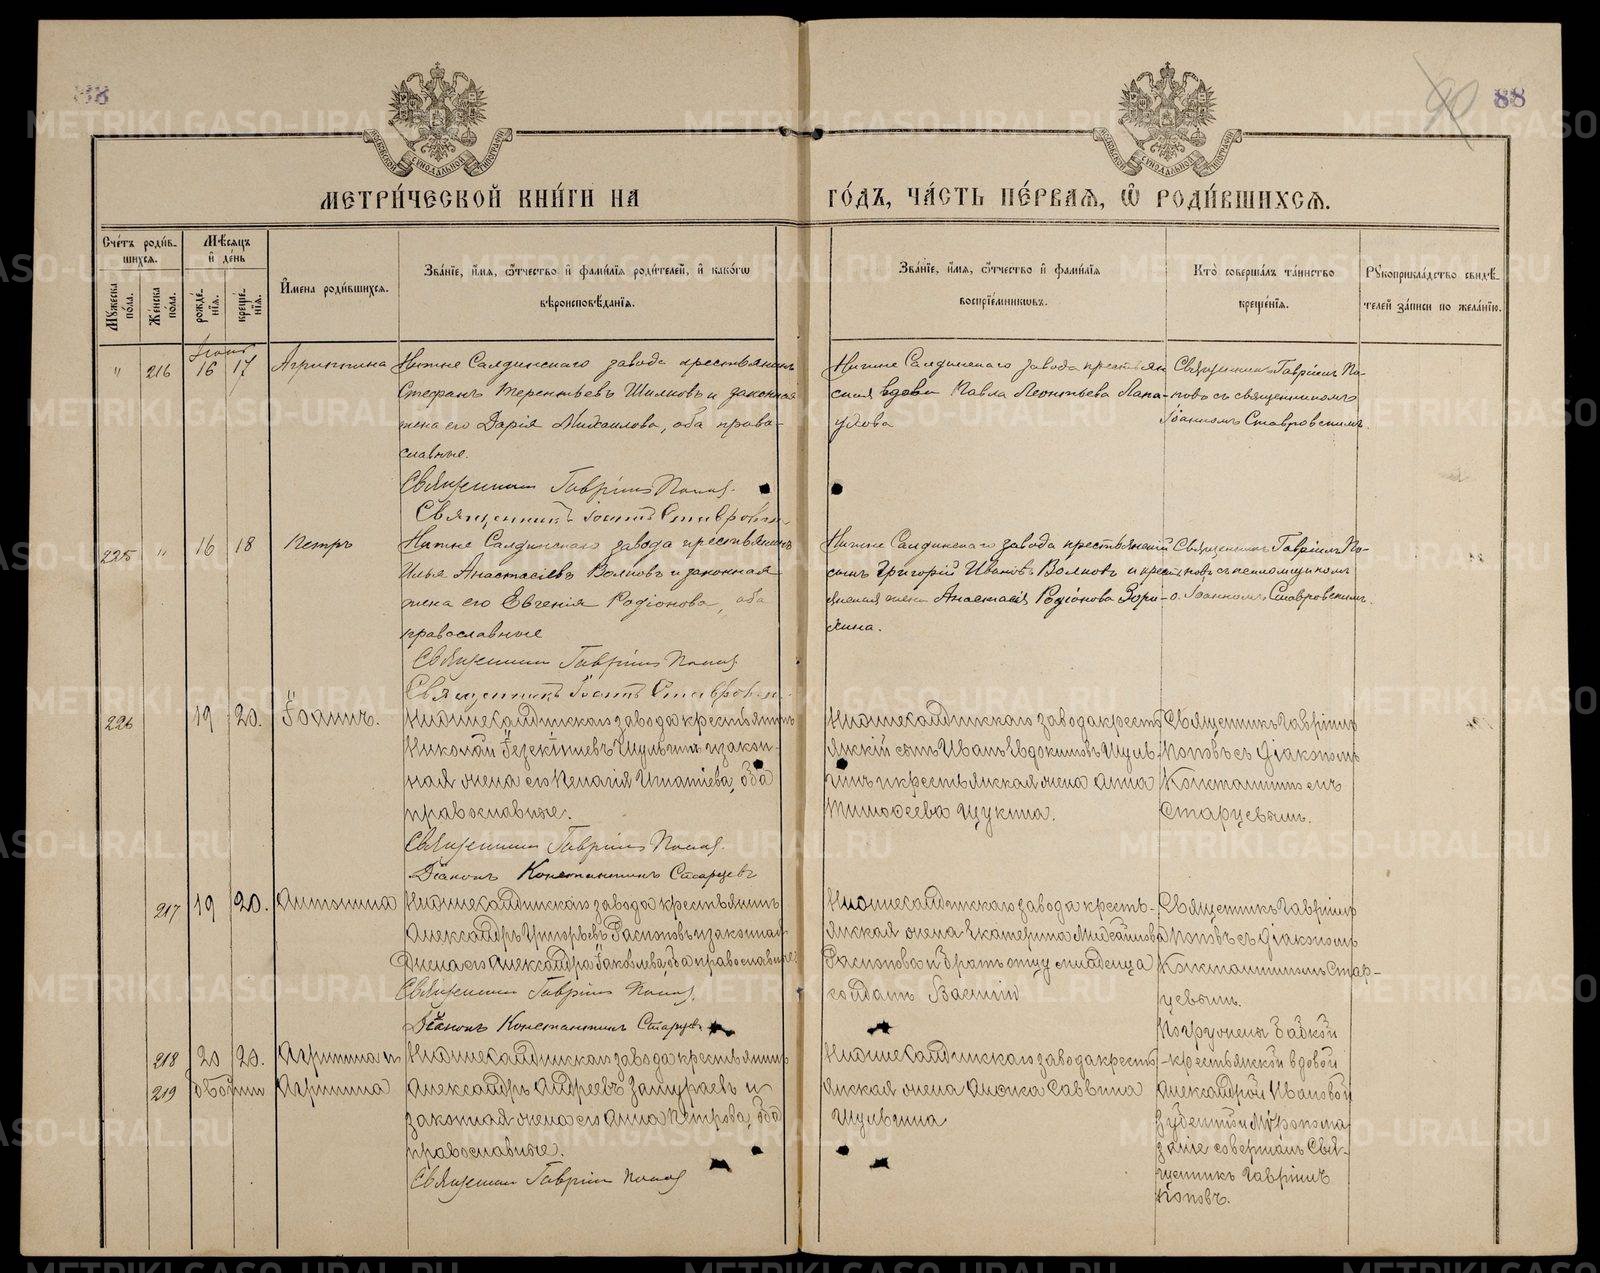 88
90 88
МЕТРИ́ЧЕСКОЙ КНИ́ГИ НА ГО́ДЪ, ЧА́СТЬ ПЕ́РВАѦ, Ѽ РОДИ́ВШИХСѦ.
Сче́тъ роди́в-
шихсѧ.
Мꙋ́жеска по́ла.
Же́нска по́ла.
Мѣ́сяцъ
и҆ де́нь
рожде́-
нїѧ.
креще́-
нїѧ.
И҆мена роди́вшихсѧ.
Зва́нїе, и҆́мѧ, ѻ҆́тчество и҆ фами́лїѧ роди́телей, и҆ како́гѡ
вѣроисповѣ́данїѧ.
Зва́нїе, и҆́мѧ, ѻ҆́тчество и҆ фами́лїѧ
воспрїе́мникѡвъ.
Кто̀ соверша́лъ та́инство
креще́нїѧ.
Рꙋкоприкла́дство свидѣ́-
телей за́писи по жела́нїю.
" 216 16 17 Агрипина
Нижне Салдинскаго завода крестьянинъ
Стефанъ Терентьевъ Шилковъ и законная
жена его Дарія Михаилова, оба право-
славные.
Священникъ Гавріилъ Поповъ
Священникъ Іоаннъ Ставровскій
Нижне Салдинскаго завода крестьян
ская вдова Павла Леонтьева
Священникъ Гавріилъ По-
повъ съ священникомъ
Іоанномъ Ставровскимъ.
225 " 16 18 Петръ
Нижне Салдинскаго завода крестьянинъ
Илья Анастасіевъ Волковъ и законная
жена его Евгенія Родіонова, оба
православные
Священникъ Гавріилъ Поповъ
Священникъ Іоаннъ Ставровскій
Нижне Салдинскаго завода крестьянскій
сынъ Григорій Ивановъ Волковъ и крест
янская жена Анастасія Родіонова Зори-
хина.
Священникъ Гавріилъ По-
повъ съ псаломщикомъ
о. Іоанномъ Ставровскимъ.
226 19 20. Іоаннъ.
Нижнесалдинскаго завода крестьянинъ
Николай Іезекіилевъ Шульгинъ и закон-
ная жена его Пелагія Игнатіева, оба
православные.
Священникъ Гавріилъ Поповъ
Діаконъ Константинъ Старцевъ
Нижнесалдинскаго завода крестья
янскій сынъ Иванъ Евдокимовъ Шуль-
гинъ и крестьянская жена Анна
Тимофеева Щукина.
Священникъ Гавріилъ
Поповъ съ діакономъ
Константиномъ
Старцевымъ.
217 19 20. Антонина
Нижнесалдинскаго завода крестьянинъ
Александръ Григорьевъ Распоповъ и законная
жена его Александра Іаковлева, оба православные
Священникъ Гавріилъ Поповъ
Діаконъ Константинъ Старцевъ
Нижнесалдинскаго завода кресть-
янская жена Екатерина Михайлова
Распопова и братъ отцу младенца
солдатъ Василій
Священникъ Гавріилъ
Поповъ съ діакономъ
Константиномъ Стар-
цевымъ.
218 20 20. Агрипина и
219 двойни Агрипина
Нижнесалдинскаго завода крестьянинъ
Александръ Андреевъ Замураевъ и
законная жена его Анна Петрова, оба
православные.
Священникъ Гавріилъ Поповъ
Нижнесалдинскаго завода крестья
янская жена Анфиса Саввина
Шульгина
Погружены бабкой
-крестьянской вдовой
Александрой Ивановой
Мѵропома
заніе совершалъ Свя-
щенникъ Гавріилъ
Поповъ.